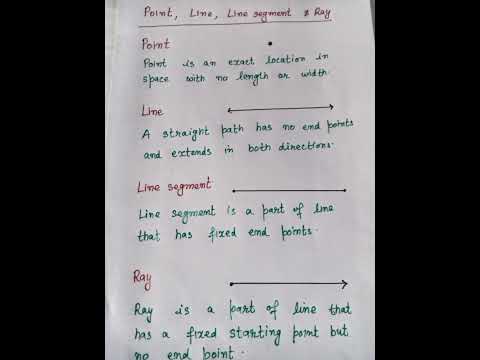 Point, Line, Line segment & Ray
Point
Point is an exact location in
space with no length or width.
Line
A straight path has no end points
and extends in both directions.
Line segment
Line segment is a part of line
that has fixed end points.
Ray
Ray is a part of line that
has a fixed starting point but
no end point.